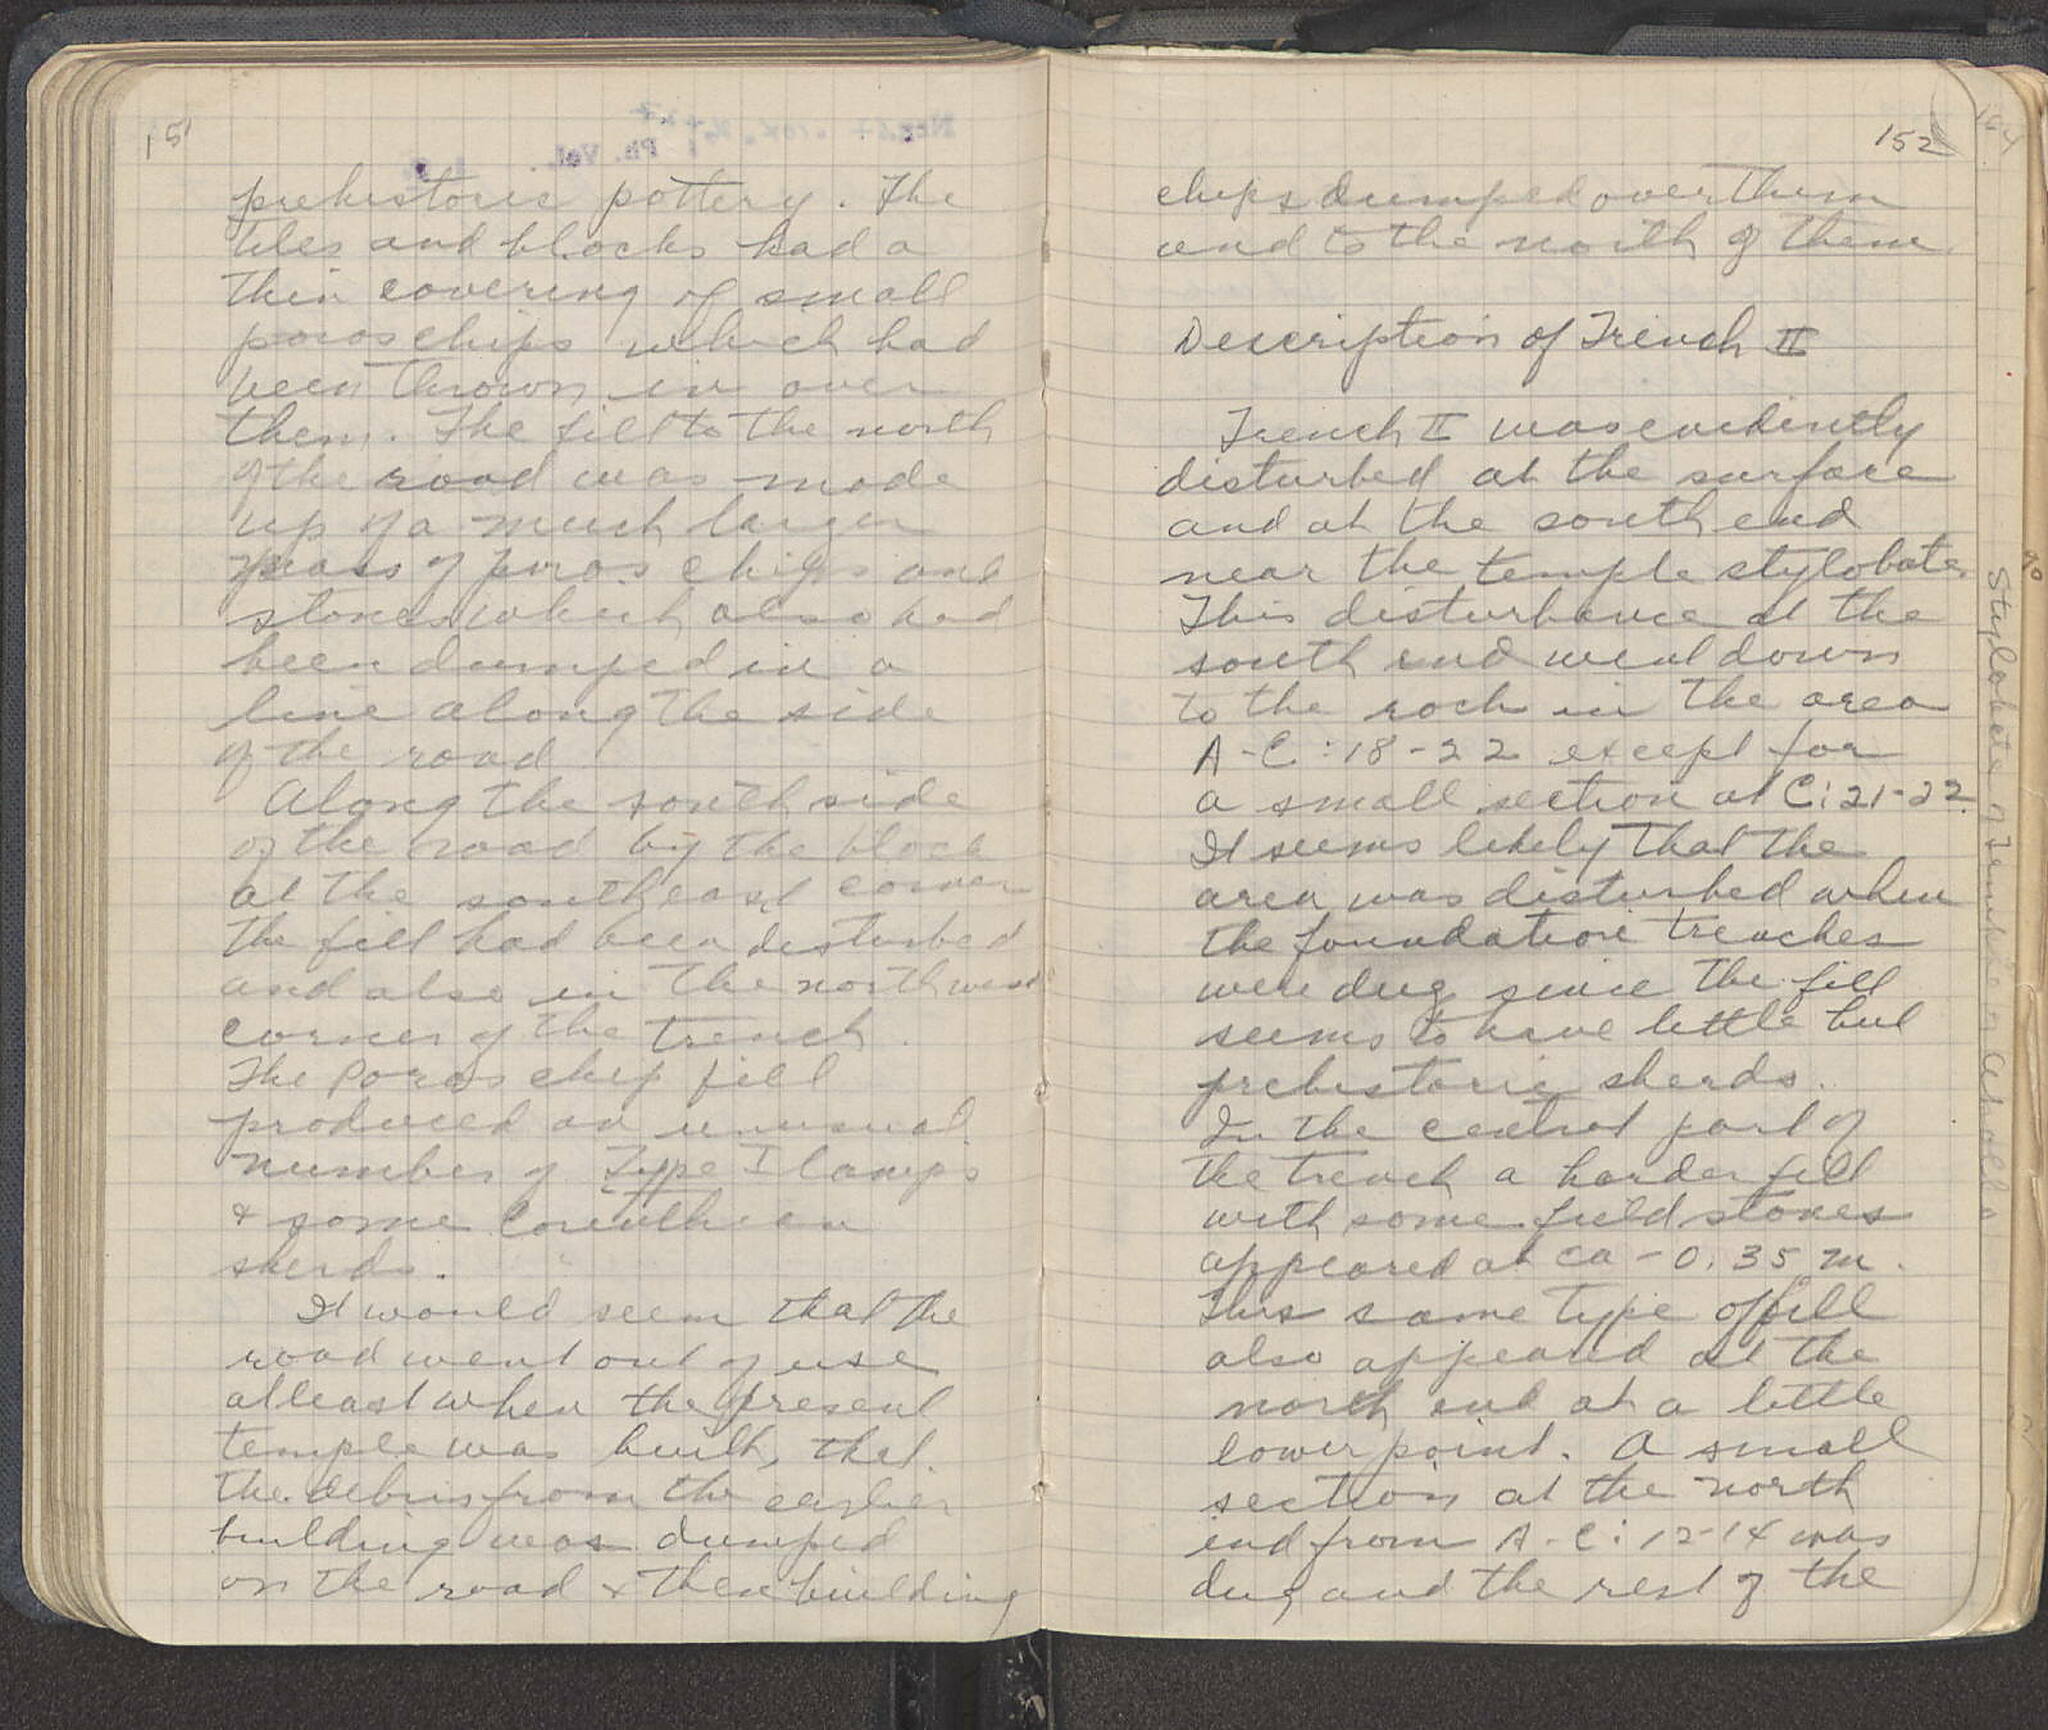 151
prehistoric pottery. The
tiles and blocks had a
thin covering of small
poros chips which had
been thrown in over
them. The fill to the north
of the road was made
up of a much larger
mass of poros chips and
stones which also had
been dumped in a
line along the side
of the road
Along the south side
of the road by the block
at the southeast corner
the fill had been disturbed
and also in the northwest
corner of the trench.
The Poros chip fill
produced an unusual
number of Type I lamps
+ some Corinthian
sherds.
It would seem that the
road went out of use
at least when the present
temple was built, that
the debris from the earlier
building was dumped
on the road + then building
152
chips dumped over them
and to the north of them.
Description of Trench II
Trench II was evidently
disturbed at the surface
and at the south end
near the temple stylobate.
This disturbance at the
south end went down
to the rock in the area
A-C:18-22 except for
a small section at C:21-22.
It seems likely that the
area was disturbed when
the foundation trenches
were dug since the fill
seems to have little but
prehistoric sherds.
In the central part of
the trench a harder fill
with some field stones
appeared at ca -0.35 m.
This same type of fill
also appeared at the
north end at a little
lower point. A small
section at the north
end from A-C:12-14 was
dug and the rest of the
Stylobate of Temple